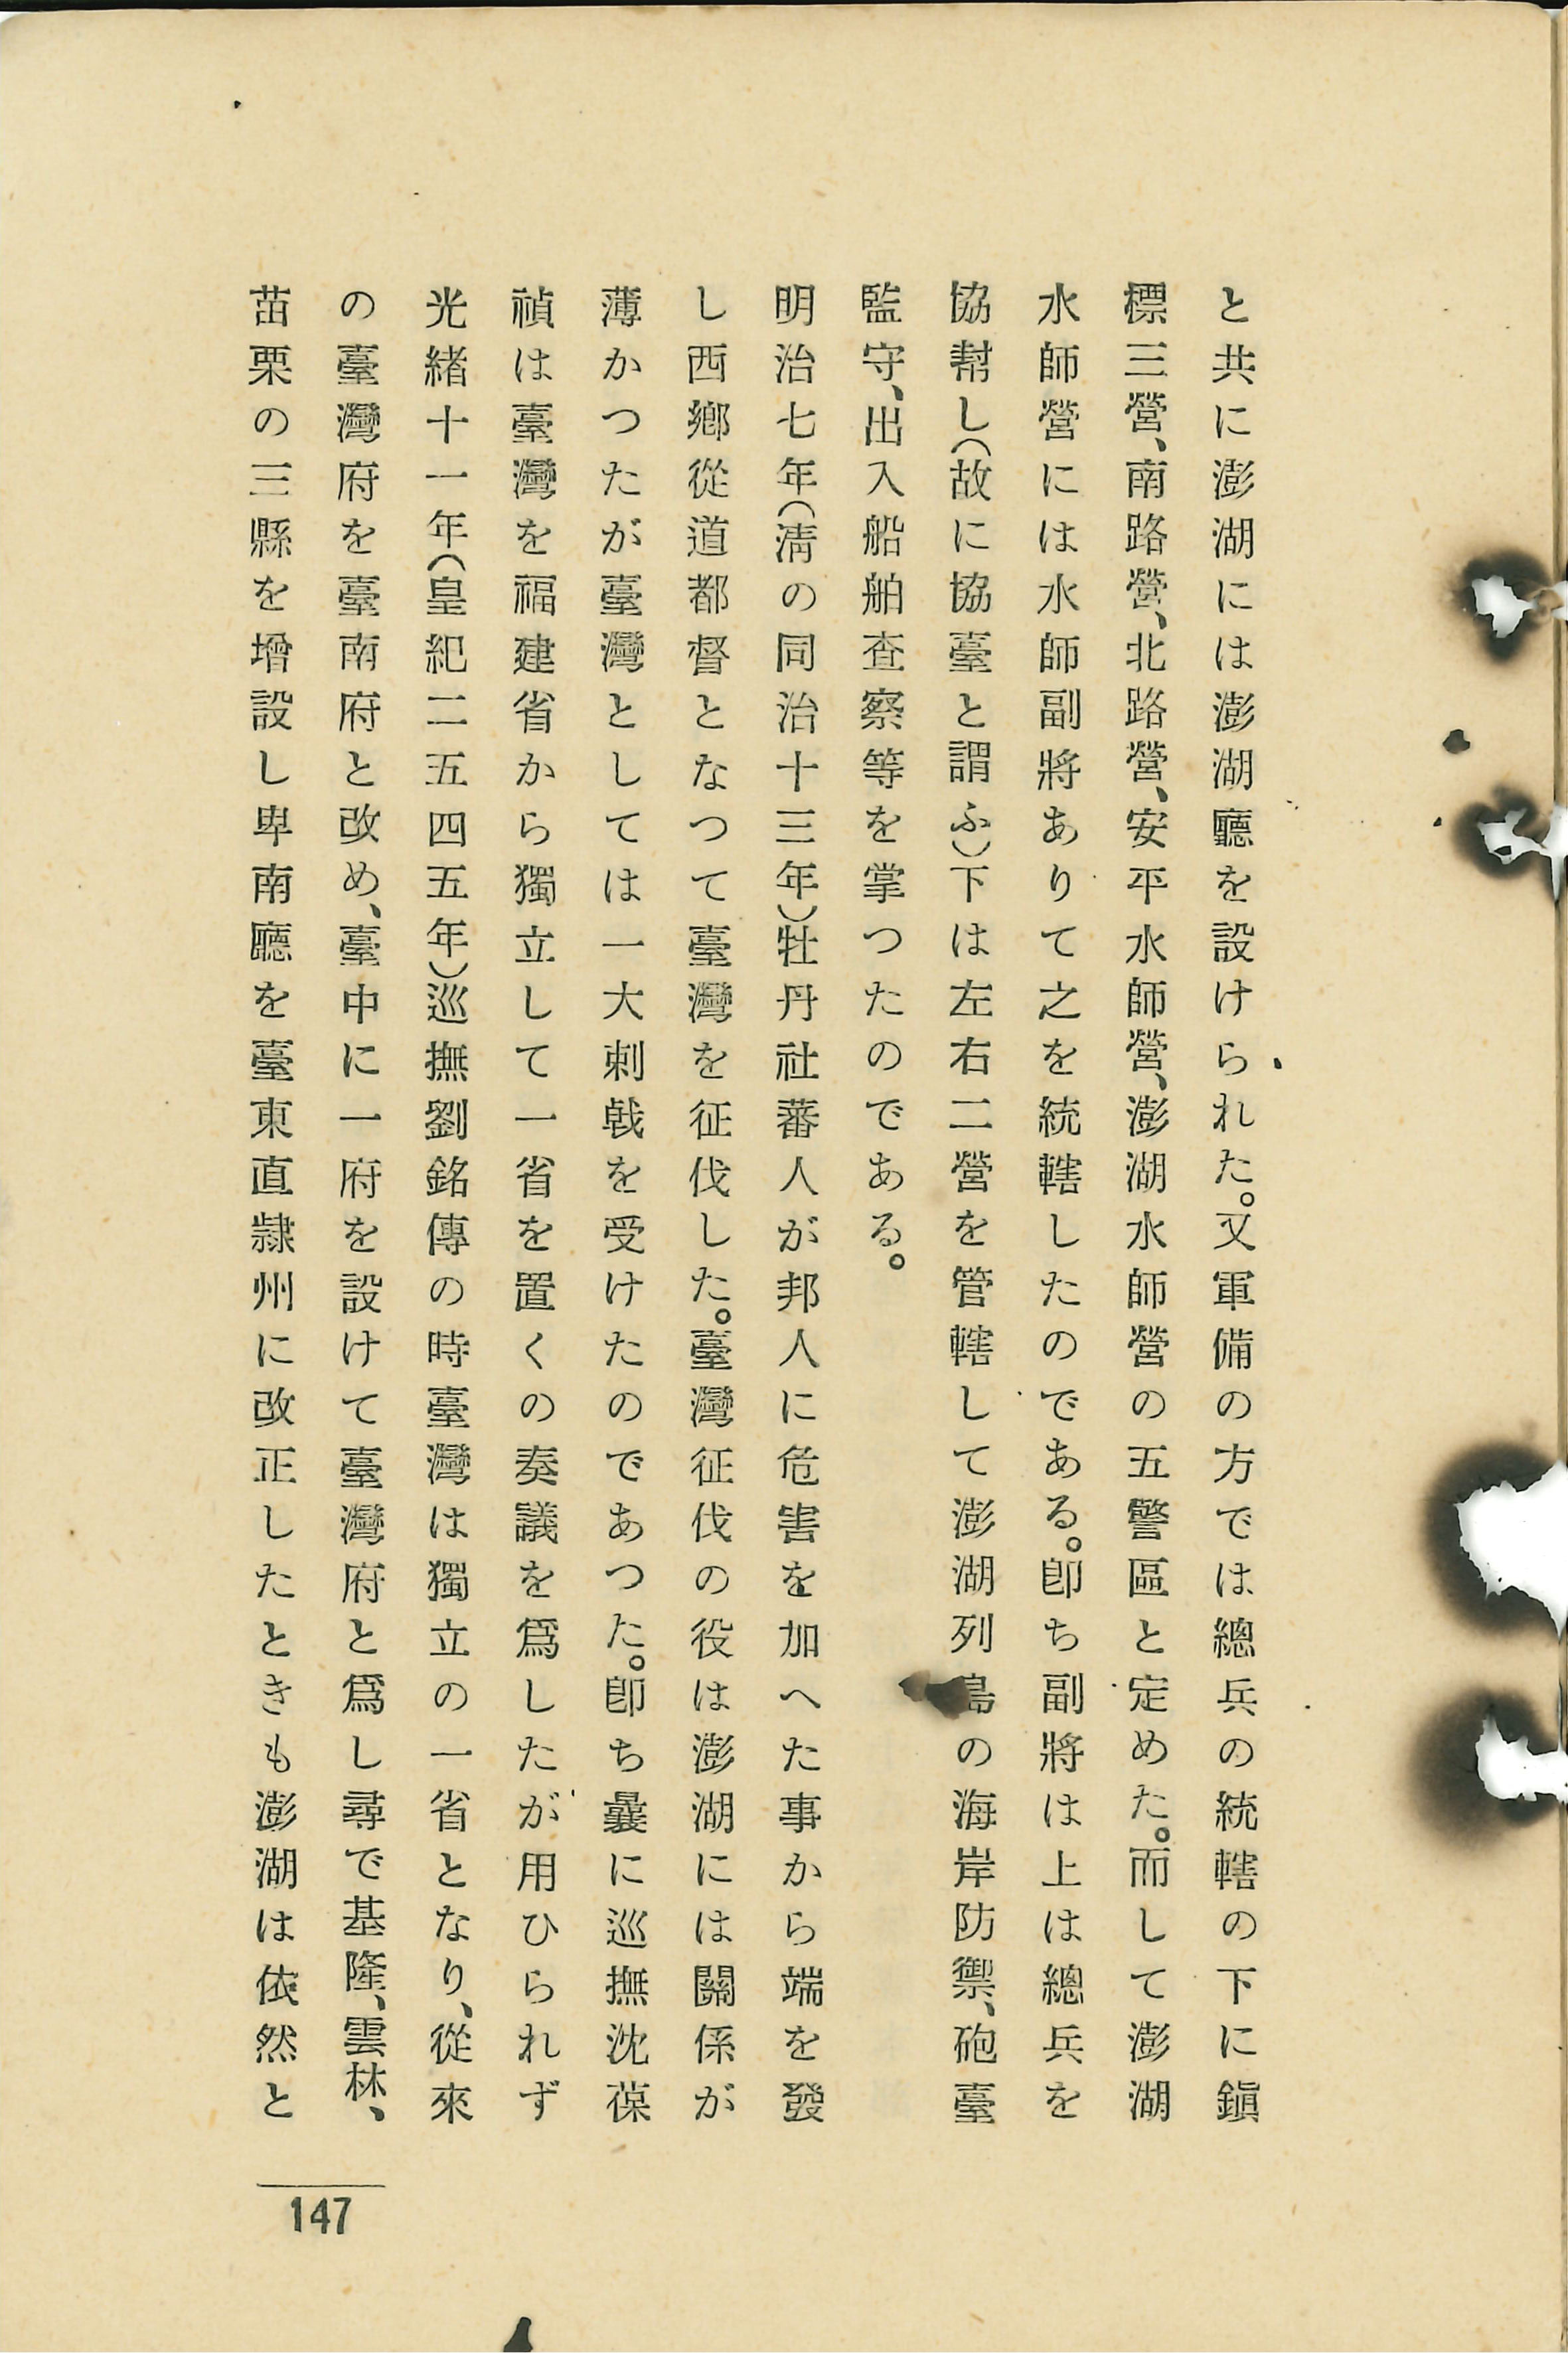 と共に澎湖には澎湖廳を設けられた。又軍備の方では總兵の統轄の下に鎭
標三營、南路營、北路營、安平水師營、澎湖水師營の五警區と定めた。而して澎湖
水師營には水師副將ありて之を統轄したのである。卽ち副將は上は總兵を
協幇し(故に協臺と謂ふ)下は左右二營を管轄して澎湖列島の海岸防禦、砲臺
監守、出入船舶査察等を掌つたのである。
明治七年(淸の同治十三年)牡丹社蕃人が邦人に危害を加へた事から端を發
し西鄕從道都督となつて臺灣を征伐した。臺灣征伐の役は澎湖には關係が
薄かつたが臺灣としては一大刺戟を受けたのであつた。卽ち曩に巡撫沈葆
禎は臺灣を福建省から獨立して一省を置くの奏議を爲したが用ひられず
光緒十一年(皇紀二五四五年)巡撫劉銘傳の時臺灣は獨立の一省となり、從來
の臺灣府を臺南府と改め、臺中に一府を設けて臺灣府と爲し尋で基隆、雲林、
苗栗の三縣を增設し卑南廳を臺東直隷州に改正したときも澎湖は依然と
147